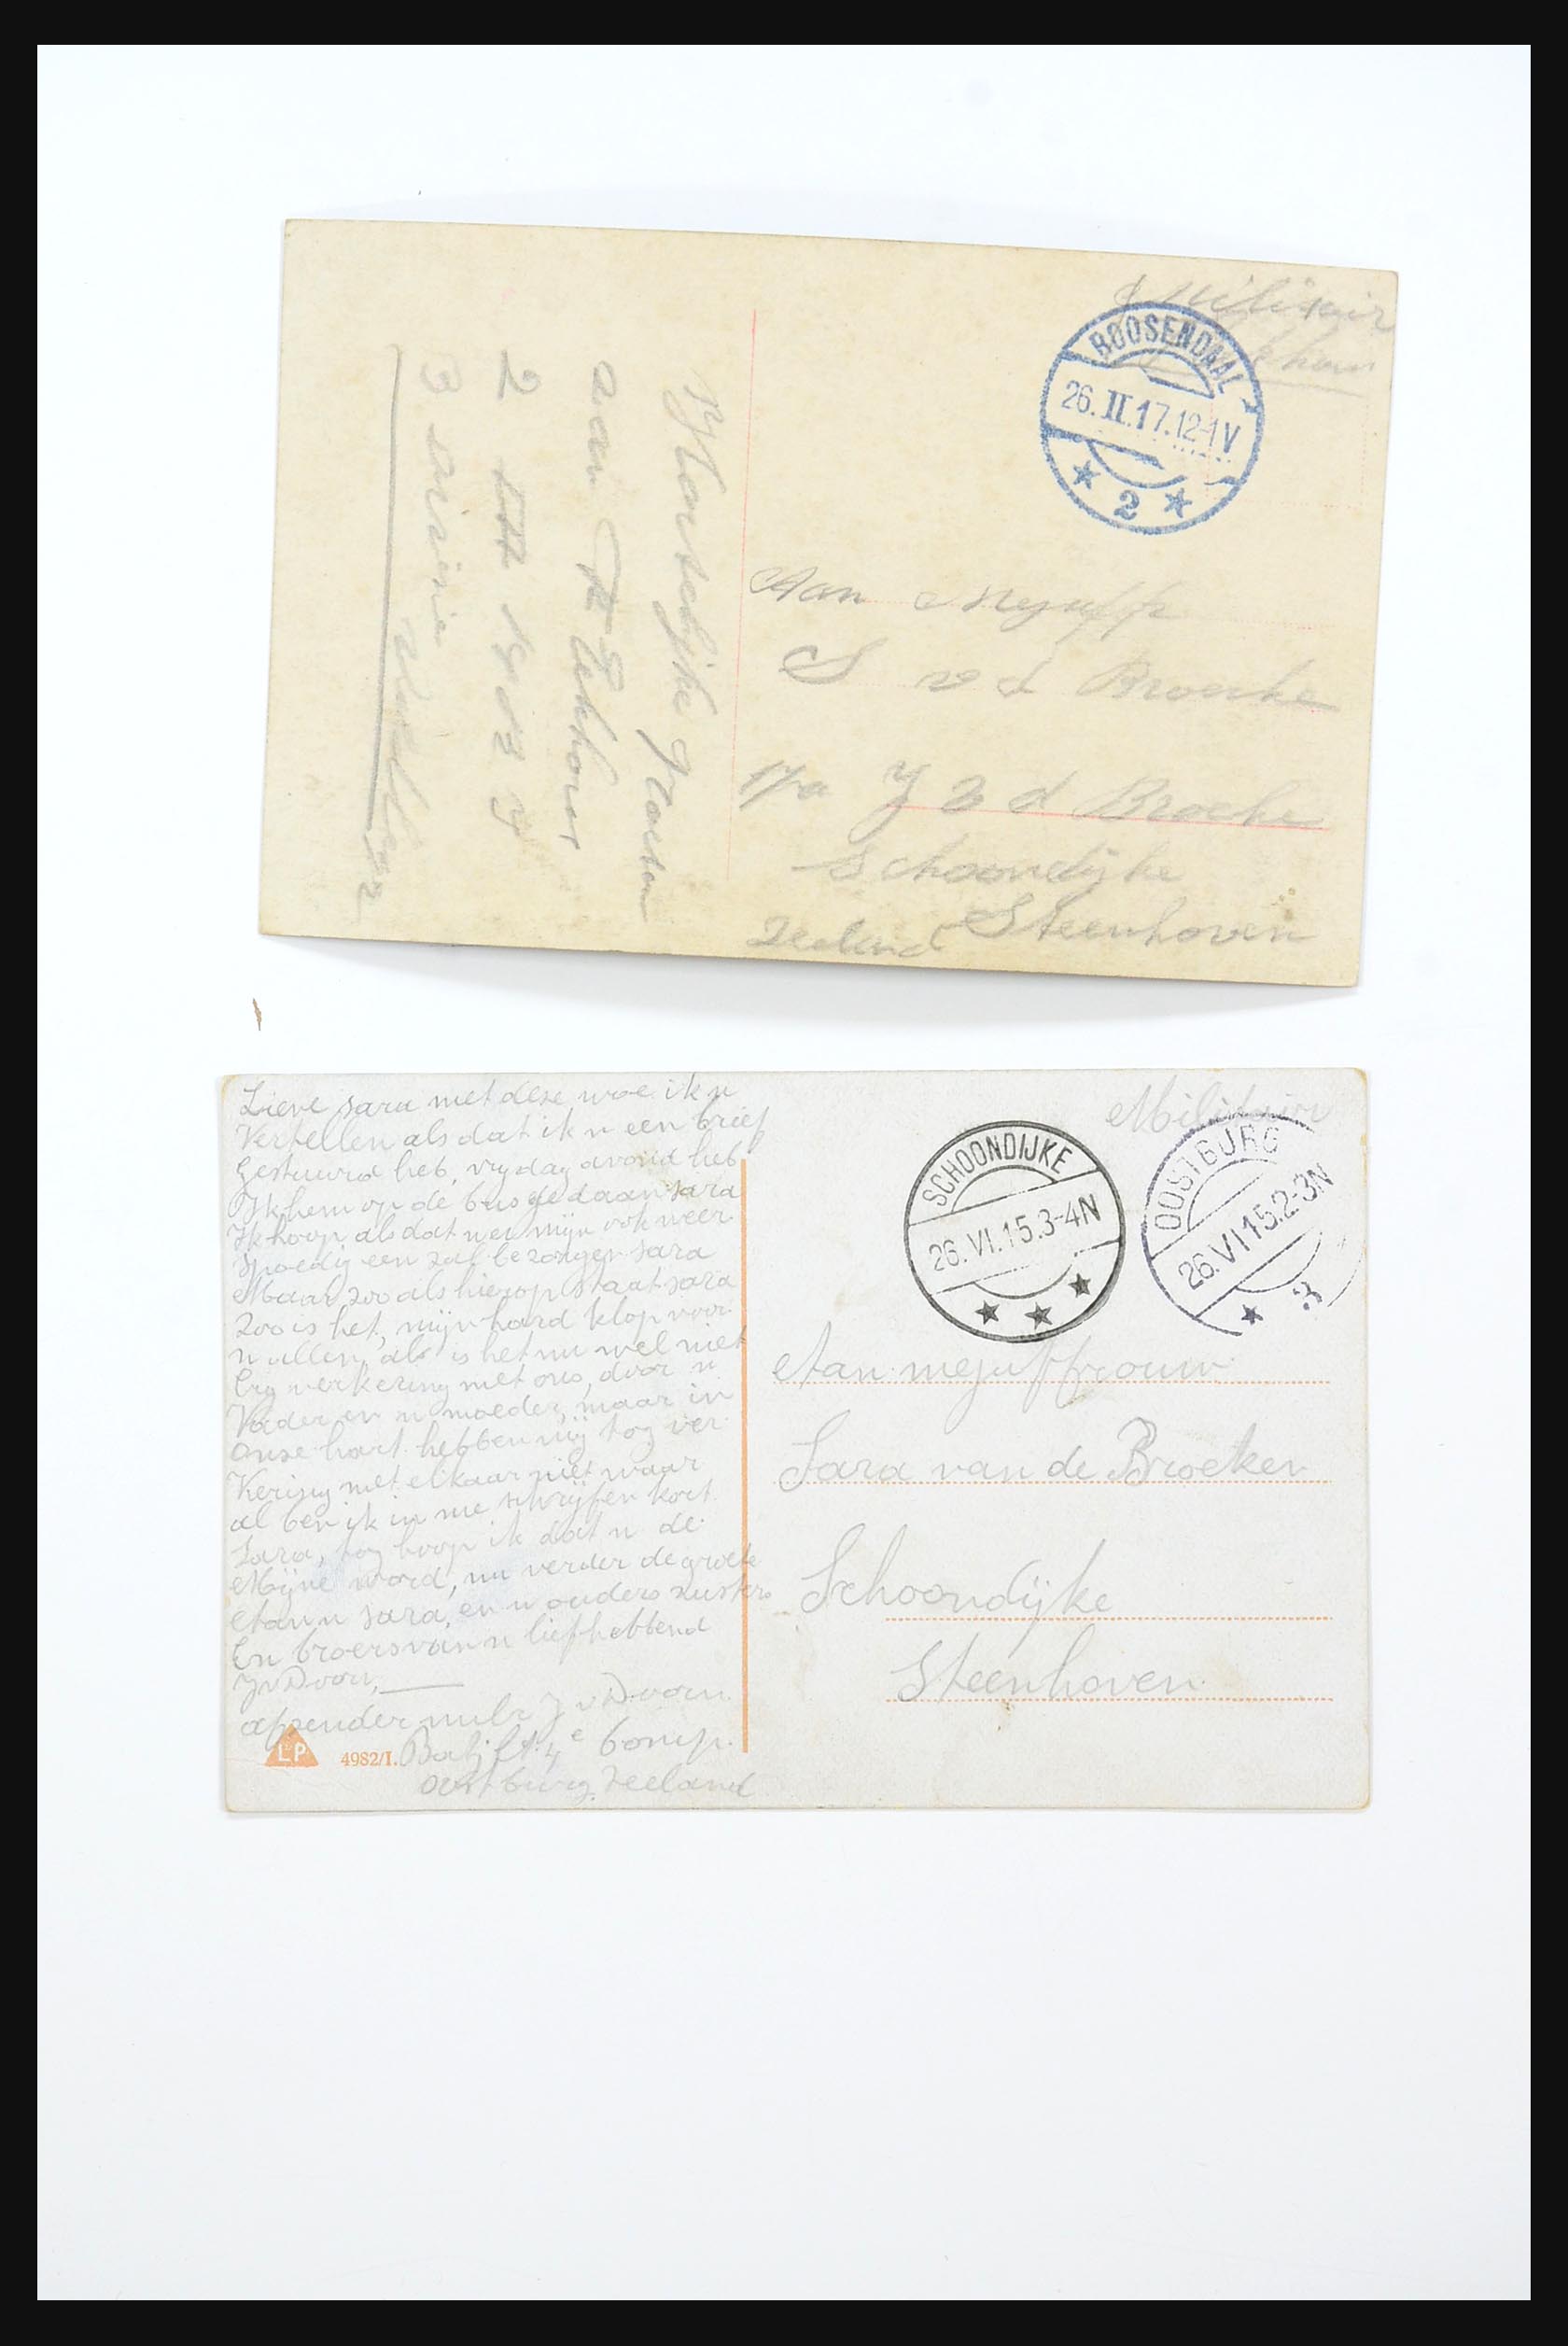 Militair
ROOSENDAAL
26.II.17.12-1V
2
Aan Mejuffr
S v d Broecke
p/a J v d Broeke
Schoondijke
Zeeland Steenhoven
Hartelijke
aan
2
3
Lieve sara met dese woe ik u
Vertellen als dat ik u een brief
Gestuurd heb, vrydag avond heb
Ik hem op de bus gedaan sara
Ik hoop als dat u er mijn ook weer
Spoedig een zal bezorgen sara
Maar zoo als hierop staat sara
Zoo is het, mijn hard klop voor
u allen, als is het nu wel niet
verkering met ons, door u
Vader en u moeder, maar in
Onse hart hebben wij tog ver
Kering met elkaar niet waar
al ben ik in me schrijfen kort
Sara, tog hoop ik dat u de
Mijne word, nu verder de groete
Aan u sara, en u ouders zusters
En broers van u liefhebbend
J v Doorn,
afzender milr J v Doorn
LP 4982/I. 4e Comp.
Oostburg Zeeland
Militair
SCHOONDIJKE
26.VI.15.3-4N
OOSTBURG
26.VI.15.2-3N
3
Aan mejuffrouw
Sara van de Broeker
Schoondijke
Steenhoven